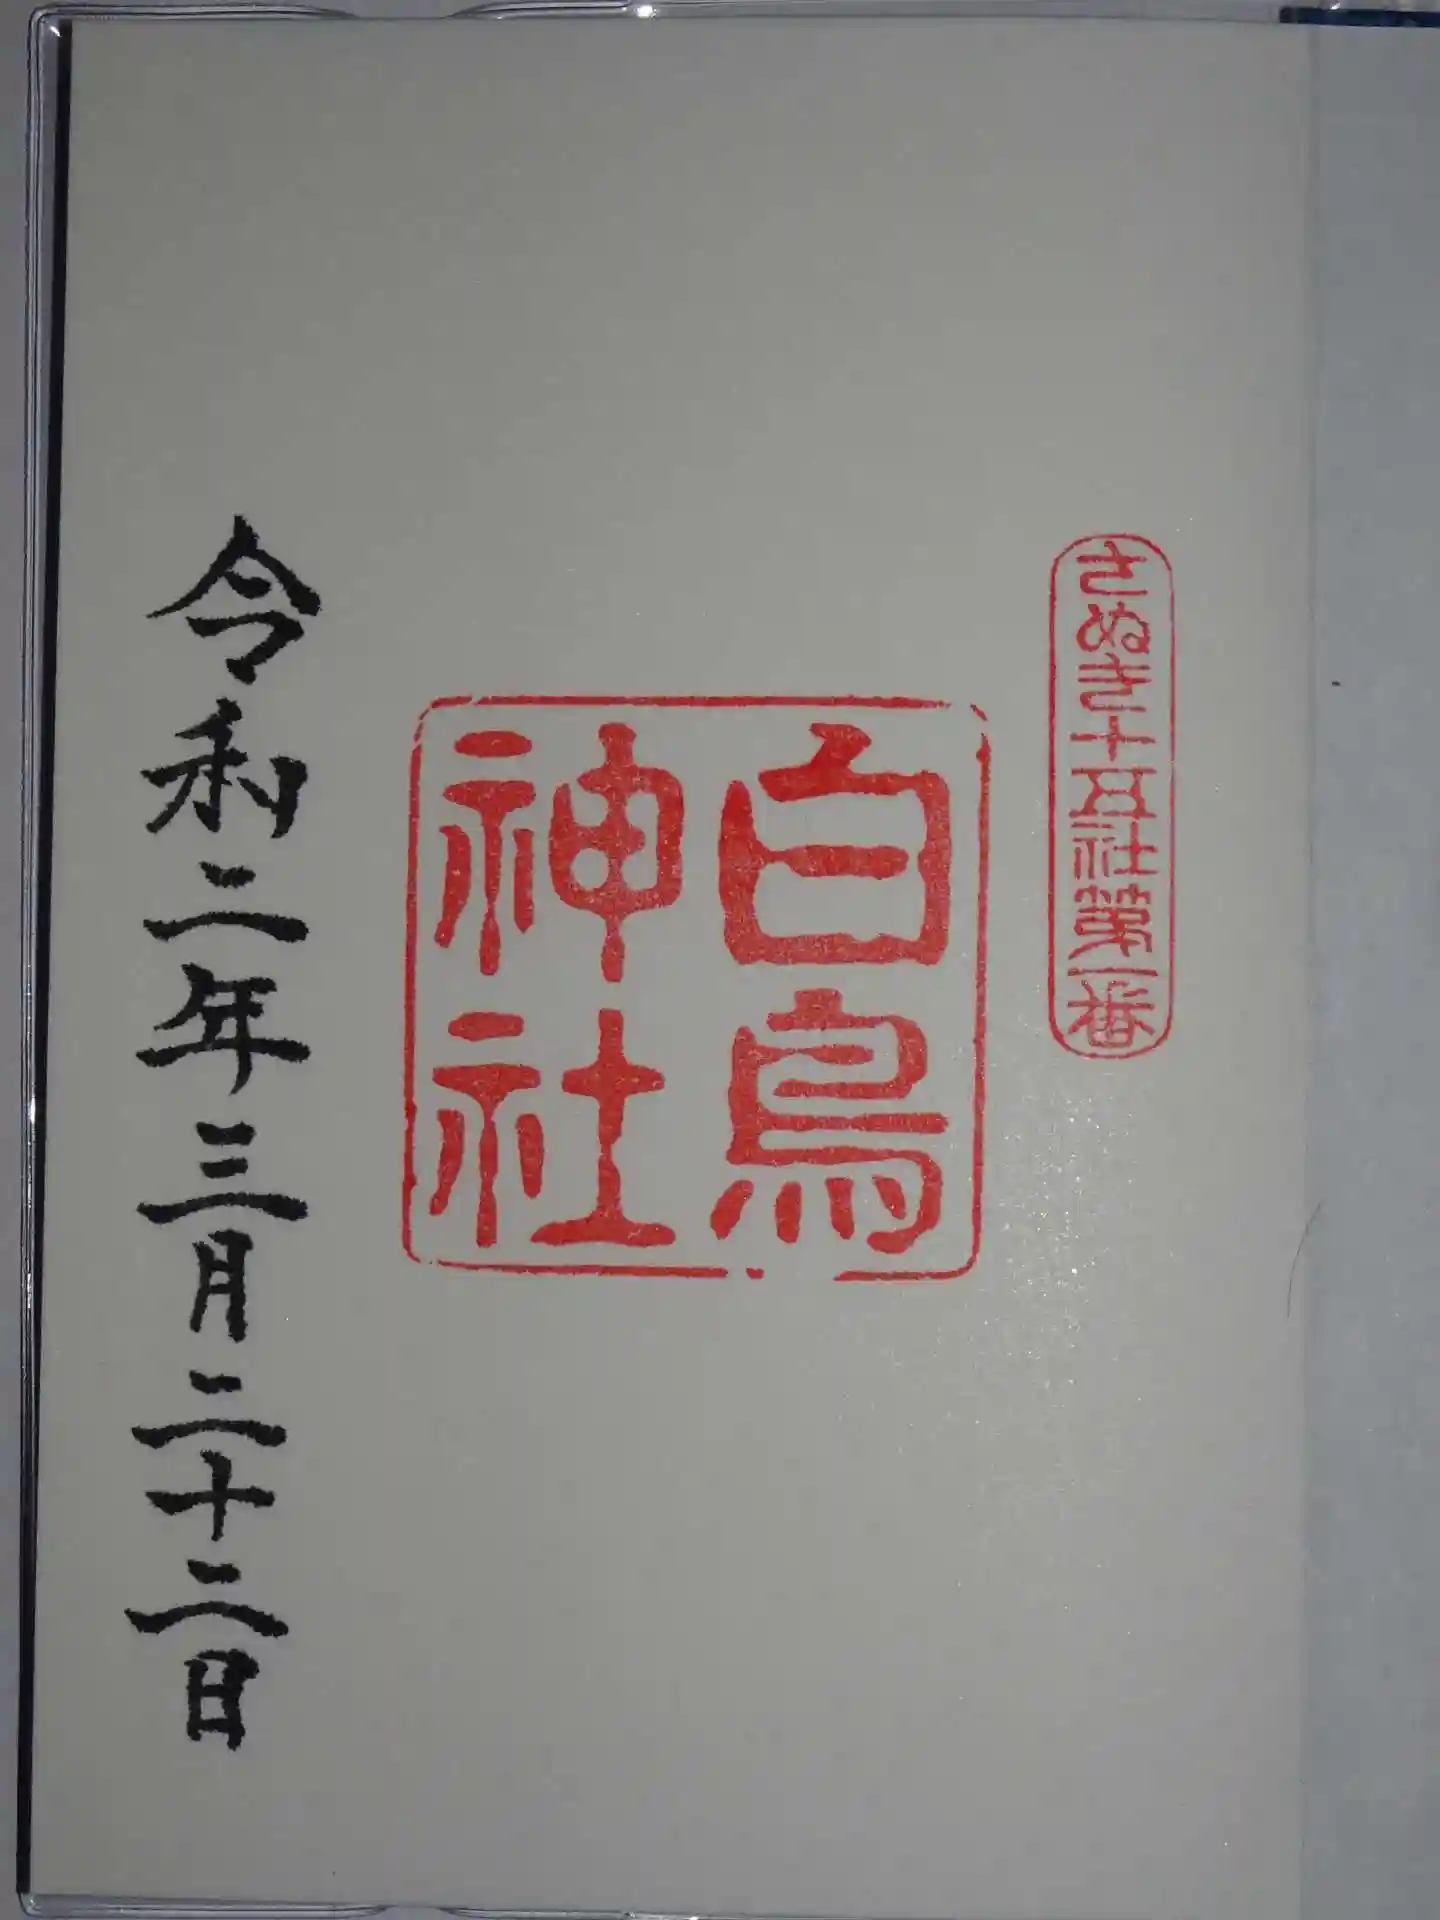 さぬき十五社第一番
白鳥
神社
令和二年三月二十二日